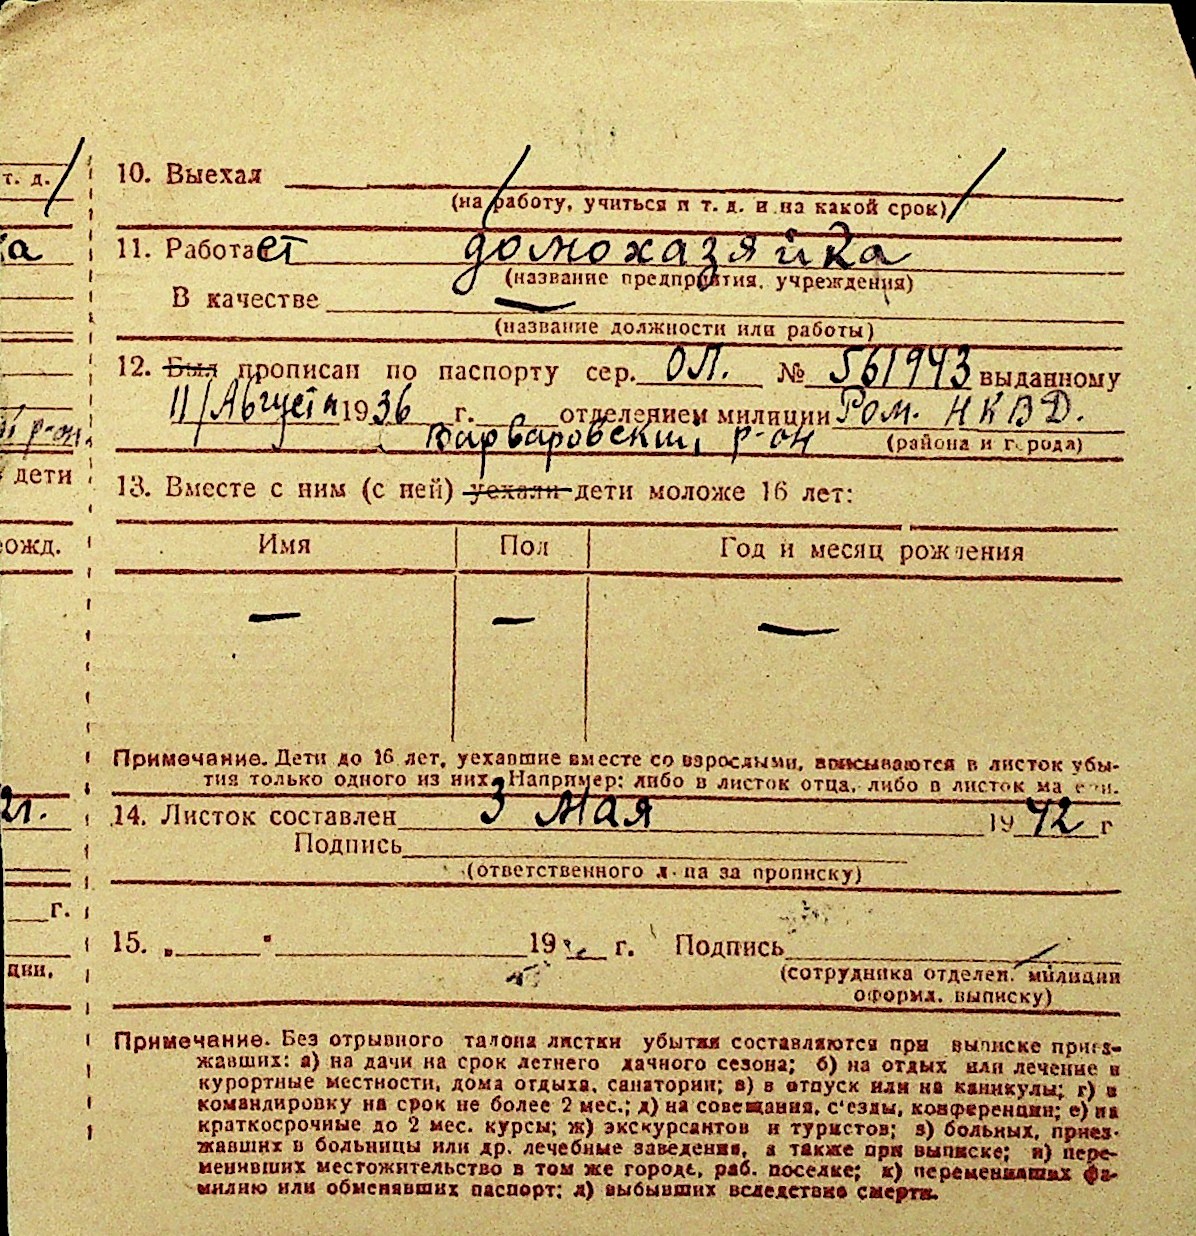 т. д. /
10. Выехал / /
(на работу, учиться и т. д. и на какой срок)
ка
11. Работает домохазяйка
(название предприятия, учреждения)
В качестве —
(название должности или работы)
12. Был прописан по паспорту сер. ОЛ. № 561943 выданному
11/Августа 1936 г. отделением милиции Ром. НКВД.
р-он.
Варваровский р-он (района и города)
дети
13. Вместе с ним (с ней) уехали дети моложе 16 лет:
ожд.
Имя Пол Год и месяц рождения
— — —
Примечание. Дети до 16 лет, уехавшие вместе со взрослыми, вписываются в листок убы-
тия только одного из них. Например: либо в листок отца, либо в листок матери.
2г.
14. Листок составлен 3 Мая 1942 г
Подпись
(ответственного лица за прописку)
г.
15. „ " 19 г. Подпись
ции.
(сотрудника отделен. милиции
оформл. выписку)
Примечание. Без отрывного талона листки убытия составляются при выписке приез-
жавших: а) на дачи на срок летнего дачного сезона; б) на отдых или лечение в
курортные местности, дома отдыха, санатории; в) в отпуск или на каникулы; г) в
командировку на срок не более 2 мес.; д) на совещания, с'езды, конференции; е) на
краткосрочные до 2 мес. курсы; ж) экскурсантов и туристов; з) больных, приез-
жавших в больницы или др. лечебные заведения, а также при выписке; и) пере-
менивших местожительство в том же городе, раб. поселке; к) переменивших фа-
милию или обменявших паспорт; л) выбывших вследствие смерти.